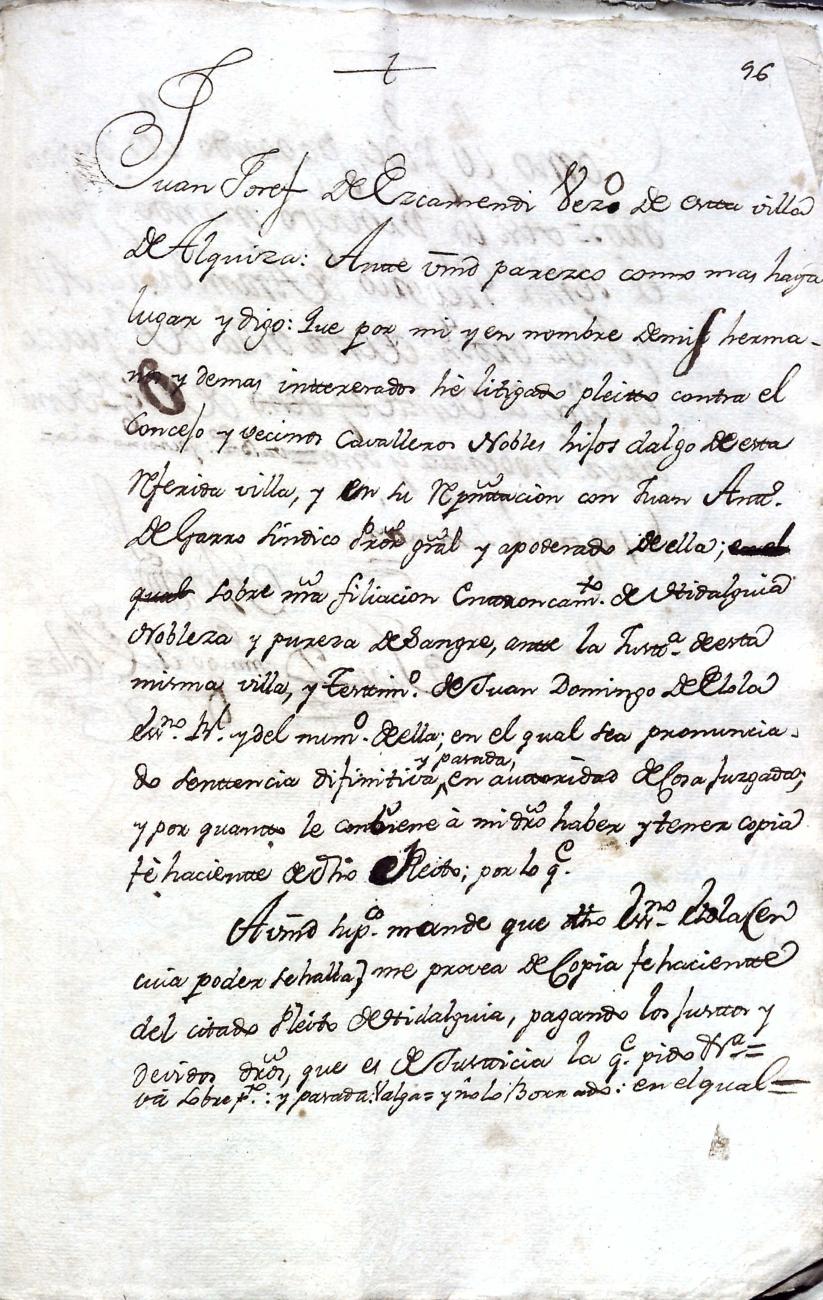 96
Juan Josef de Ezcamendi Vez.o de esta villa
de Alquiza: Ante vmd parezco como mas haga
lugar y digo: Que por mi y en nombre de mis herma-
nos y demas interesados hè litigado pleitto contra el
Concejo y vecinos Cavalleros Nobles hijos dalgo de esta
Rferida villa, y en su Rpñttacion con Juan Antt.o
de Garro sindico Pror grâl y apoderado de ella; en el
qual sobre ñra filiacion Entroncam.to de Hidalguia
Nobleza y pureza de Sangre, ante la Justt.a de esta
misma villa, y Testtim.o de Juan Domingo de Elola
Ess.no Rl. y del num.o de ella; en el qual sea pronuncia-
do senttencia difinitiva, y pasada, en auttoridad de Cosa Juzgada;
y por quantto le combiene à mi dr̃o haber y tener copia
fèhaciente de dho Pleito; por lo q.e
A vmd sup.co mande que dho Ess.no Elola (en
cuia poder se halla) me provea de Copia fehaciente
del citado Pleito de Hidalguia, pagando los Justtos y
Devidos dr̃os, que es de Justticia la q.e pido &.a=
va sobre p.to: y pasada: Valga= y ño lo Borrado: en el qual=